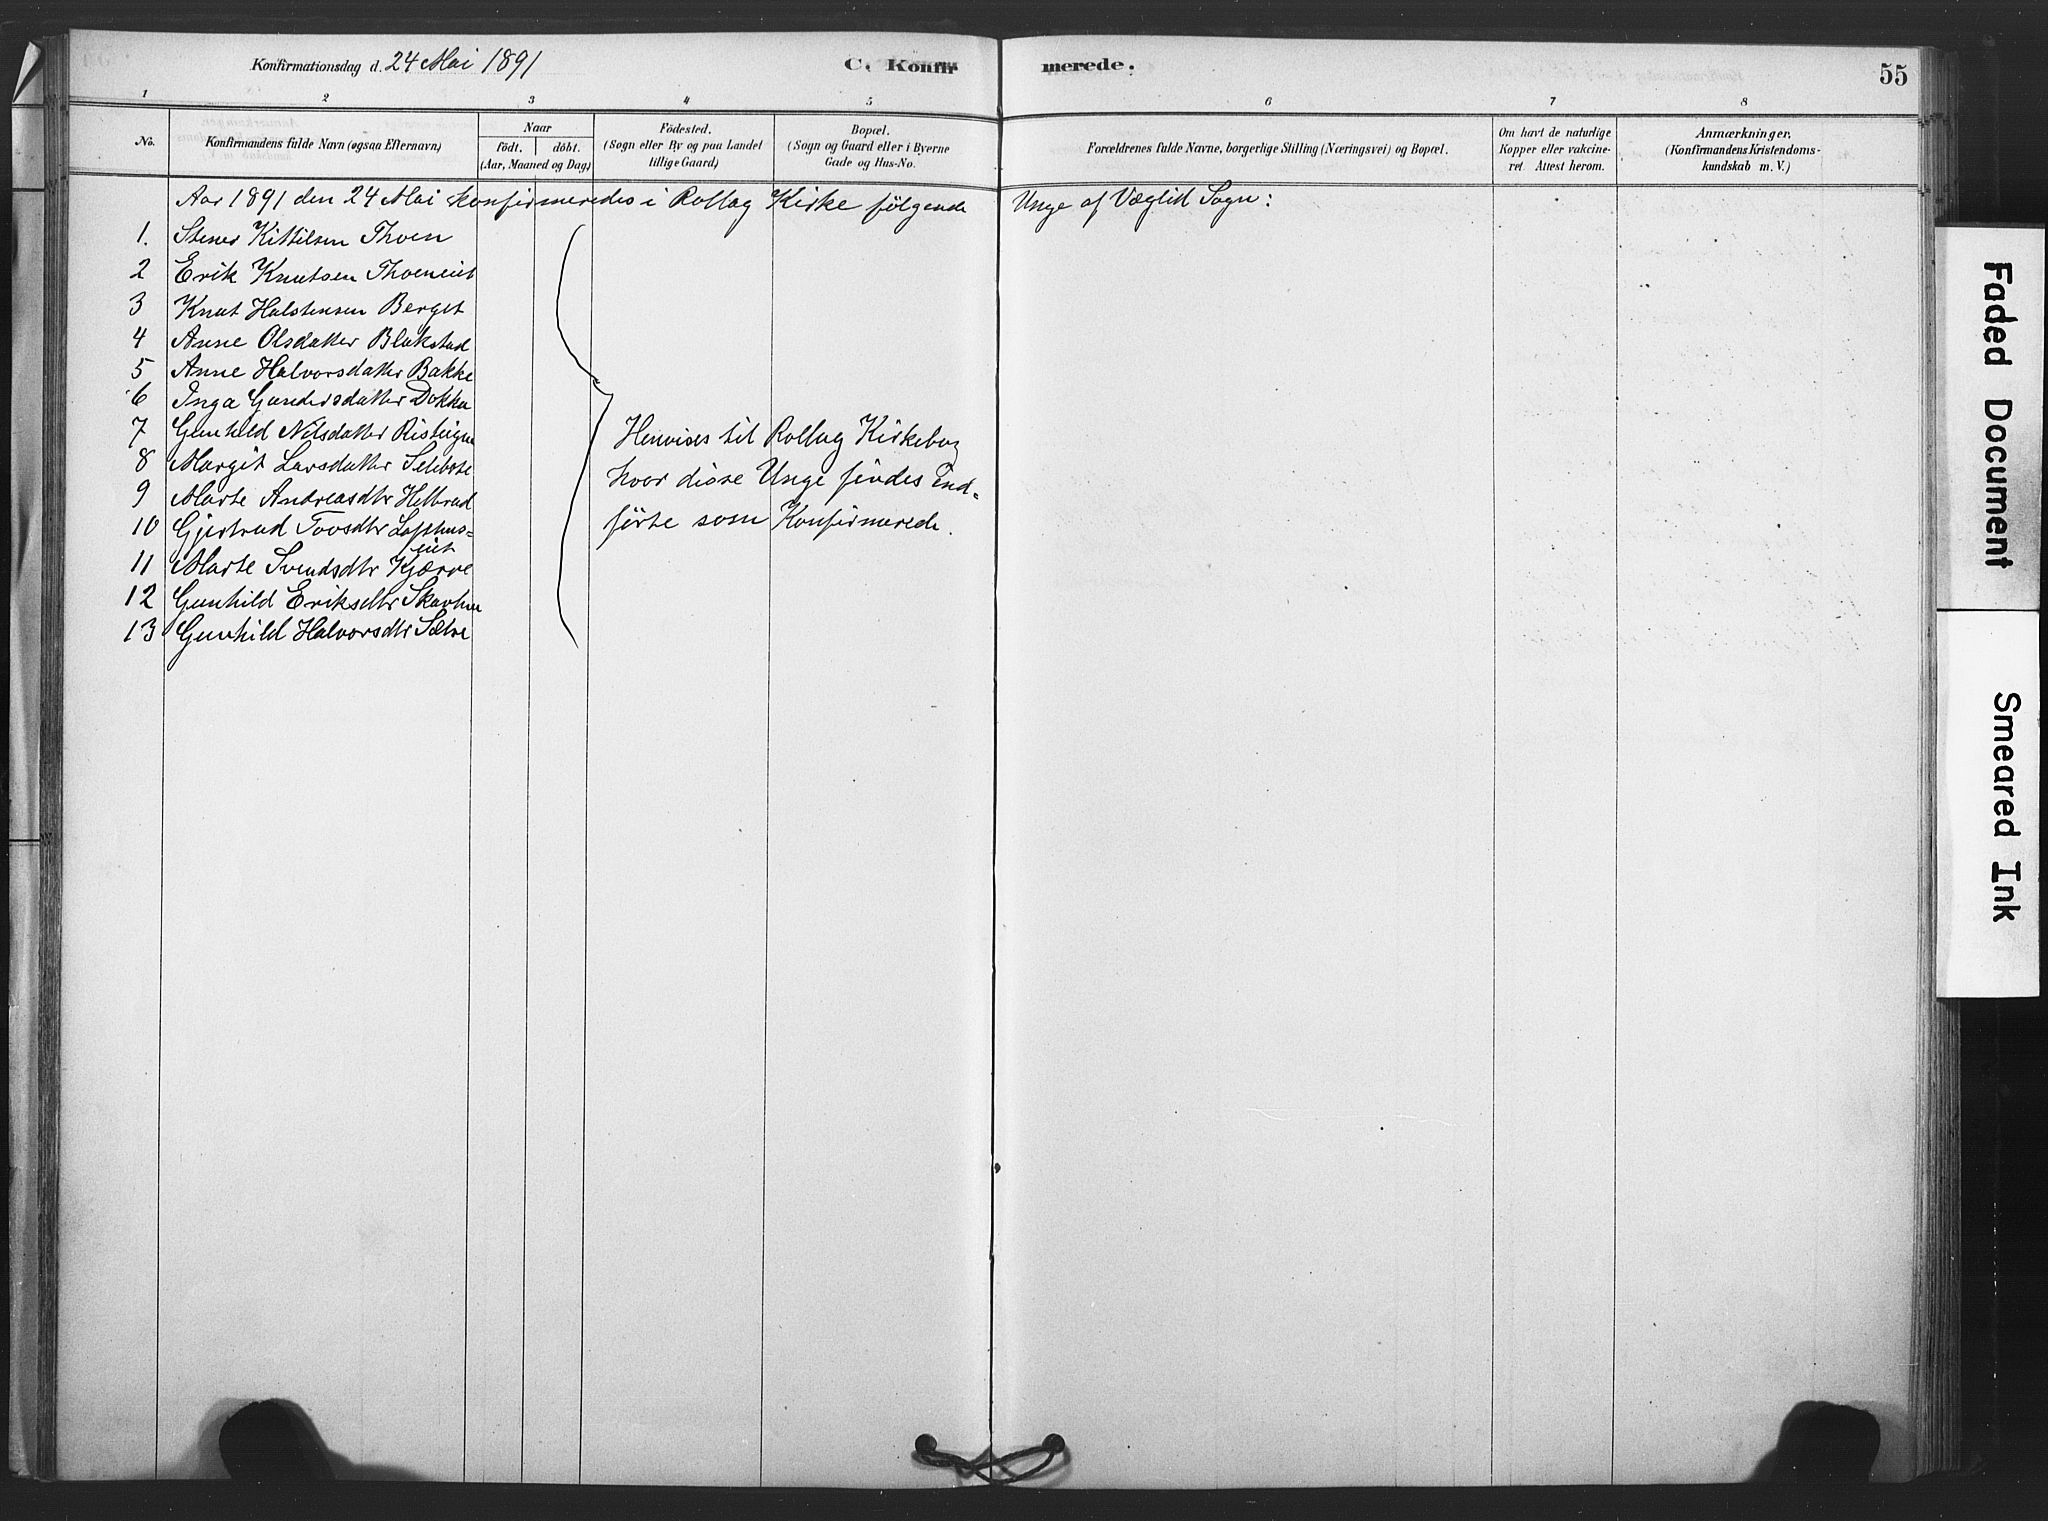 Konfirmationsdag d. 24 Mai 1891
C. Konfirmerede.
55
1 2 3 4 5 6 7 8
No.
Konfirmandens fulde Navn (ogsaa Efternavn)
Naar
født. døbt.
(Aar, Maaned og Dag)
Fødested.
(Sogn eller By og paa Landet
tillige Gaard)
Bopæl.
(Sogn og Gaard eller i Byerne
Gade og Hus-No.
Forældrenes fulde Navne, borgerlige Stilling (Næringsvei) og Bopæl.
Om havt de naturlige
Kopper eller vakcine-
ret. Attest herom.
Anmærkninger.
(Konfirmandens Kristendoms-
kundskab m. V.)
Aar 1891 den 24 Mai konfirmeredes i Rollag Kirke følgende Unge af Væglid Sogn:
1. Stener Kittilsen Thoen
2 Erik Knutsen Thoeneiet
3 Knut Halstensen Berget
4 Anne Olsdatter Blakstad
5 Anne Halvorsdatter Bakke
6 Inga Gundersdatter Dokka
7 Gunhild Nilsdatter
8 Margit Larsdatter
9 Marte Andreasdtr Helbrad
10 Gjertrud Tovsdtr Lofthus-
eiet
11 Marte Svendsdtr Kjærre
12 Gunhild Eriksdtr
13 Gunhild Halvorsdtr Sætre
Henvises til Rollag Kirkebog
hvor disse Unge findes ind-
førte som Konfirmerede.
Faded Document
Smeared Ink